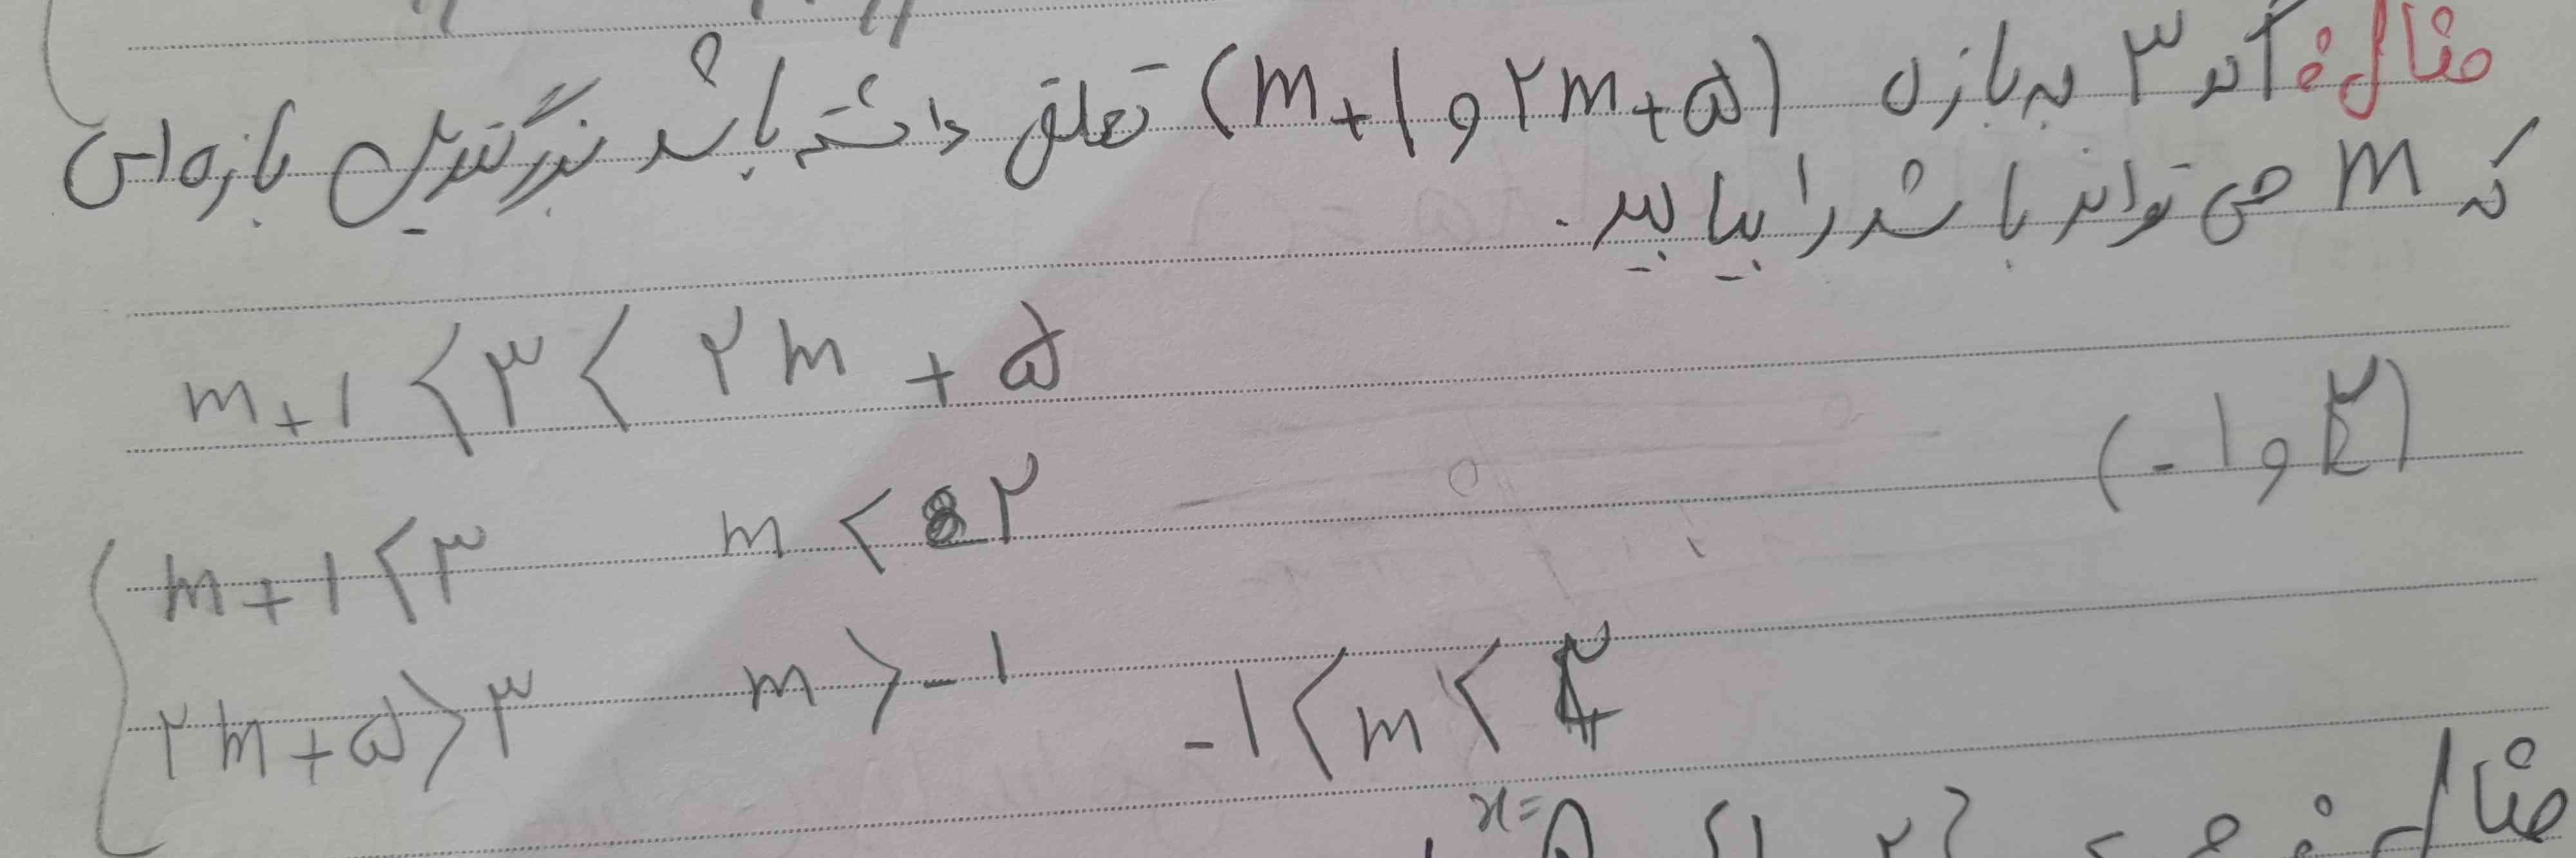 مثال: اگر ۳ به بازه‌ی (m+1 و ۲m+۵) تعلق داشته باشد بزرگترین بازه‌ای
که m می تواند باشد را بیابید.
m+1 < ۳ < ۲m + ۵
(-1 و ۲)
m+1 < ۳ m < ۲
۲m+۵ > ۳ m > -1 -1 < m < ۲
x=
مثال: